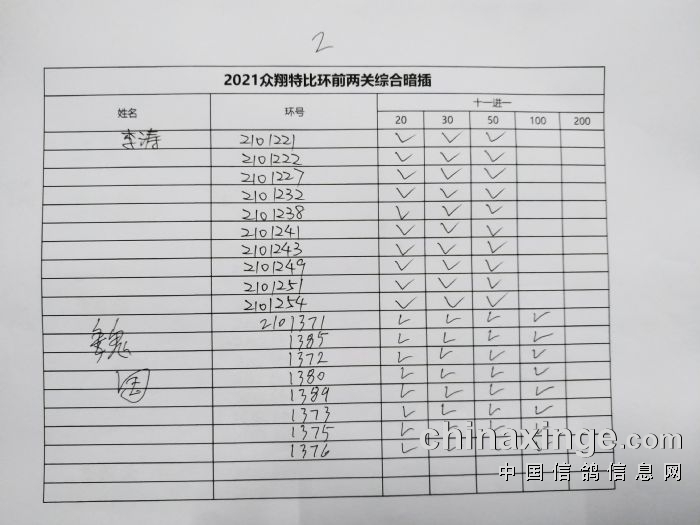 2
2021众翔特比环前两关综合暗插
姓名 环号 十一进一
20 30 50 100 200
李涛 2101221 ✓ ✓ ✓
2101222 ✓ ✓ ✓
2101227 ✓ ✓ ✓
2101232 ✓ ✓ ✓
2101238 ✓ ✓ ✓
2101241 ✓ ✓ ✓
2101243 ✓ ✓ ✓
2101249 ✓ ✓ ✓
2101251 ✓ ✓ ✓
2101254 ✓ ✓ ✓
2101371 ✓ ✓ ✓ ✓
魏 1385 ✓ ✓ ✓ ✓
1372 ✓ ✓ ✓ ✓
1380 ✓ ✓ ✓ ✓
1389 ✓ ✓ ✓ ✓
1373 ✓ ✓ ✓ ✓
1375 ✓ ✓ ✓ ✓
1376 ✓ ✓ ✓ ✓
chinaxinge.com
中国信鸽信息网